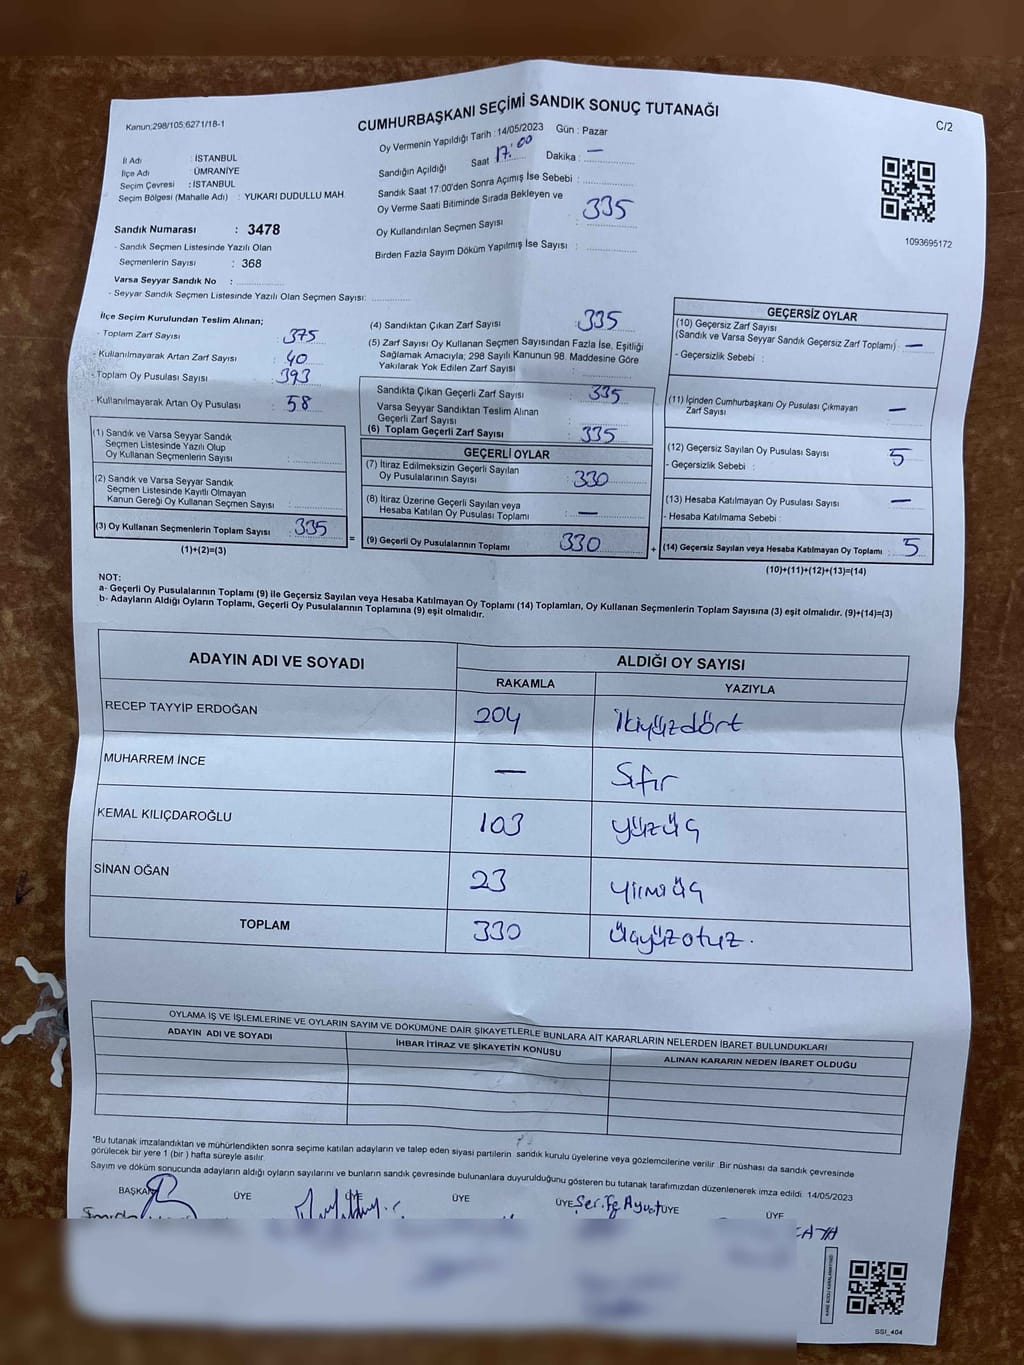 Kanun:298/105;6271/18-1
CUMHURBAŞKANI SEÇİMİ SANDIK SONUÇ TUTANAĞI
C/2
Oy Vermenin Yapıldığı Tarih : 14/05/2023 Gün : Pazar
İl Adı : İSTANBUL
İlçe Adı : ÜMRANİYE
Seçim Çevresi : İSTANBUL
Seçim Bölgesi (Mahalle Adı) : YUKARI DUDULLU MAH.
Sandığın Açıldığı Saat 17:00 Dakika : —
Sandık Saat 17:00'den Sonra Açımış İse Sebebi :
Oy Verme Saati Bitiminde Sırada Bekleyen ve
Oy Kullandırılan Seçmen Sayısı : 335
Birden Fazla Sayım Döküm Yapılmış İse Sayısı :
1093695172
Sandık Numarası : 3478
- Sandık Seçmen Listesinde Yazılı Olan
Seçmenlerin Sayısı : 368
Varsa Seyyar Sandık No :
- Seyyar Sandık Seçmen Listesinde Yazılı Olan Seçmen Sayısı:
İlçe Seçim Kurulundan Teslim Alınan;
- Toplam Zarf Sayısı : 375
- Kullanılmayarak Artan Zarf Sayısı : 40
- Toplam Oy Pusulası Sayısı : 393
- Kullanılmayarak Artan Oy Pusulası : 58
(1) Sandık ve Varsa Seyyar Sandık
Seçmen Listesinde Yazılı Olup
Oy Kullanan Seçmenlerin Sayısı :
(2) Sandık ve Varsa Seyyar Sandık
Seçmen Listesinde Kayıtlı Olmayan
Kanun Gereği Oy Kullanan Seçmen Sayısı :
(3) Oy Kullanan Seçmenlerin Toplam Sayısı : 335
(1)+(2)=(3)
=
(4) Sandıktan Çıkan Zarf Sayısı : 335
(5) Zarf Sayısı Oy Kullanan Seçmen Sayısından Fazla İse, Eşitliği
Sağlamak Amacıyla; 298 Sayılı Kanunun 98. Maddesine Göre
Yakılarak Yok Edilen Zarf Sayısı :
Sandıkta Çıkan Geçerli Zarf Sayısı : 335
Varsa Seyyar Sandıktan Teslim Alınan
Geçerli Zarf Sayısı :
(6) Toplam Geçerli Zarf Sayısı : 335
GEÇERLİ OYLAR
(7) İtiraz Edilmeksizin Geçerli Sayılan
Oy Pusulalarının Sayısı : 330
(8) İtiraz Üzerine Geçerli Sayılan veya
Hesaba Katılan Oy Pusulası Toplamı : —
(9) Geçerli Oy Pusulalarının Toplamı : 330
+
GEÇERSİZ OYLAR
(10) Geçersiz Zarf Sayısı
(Sandık ve Varsa Seyyar Sandık Geçersiz Zarf Toplamı) : —
- Geçersizlik Sebebi :
(11) İçinden Cumhurbaşkanı Oy Pusulası Çıkmayan
Zarf Sayısı : —
(12) Geçersiz Sayılan Oy Pusulası Sayısı : 5
- Geçersizlik Sebebi :
(13) Hesaba Katılmayan Oy Pusulası Sayısı : —
- Hesaba Katılmama Sebebi :
(14) Geçersiz Sayılan veya Hesaba Katılmayan Oy Toplamı : 5
(10)+(11)+(12)+(13)=(14)
NOT:
a- Geçerli Oy Pusulalarının Toplamı (9) ile Geçersiz Sayılan veya Hesaba Katılmayan Oy Toplamı (14) Toplamları, Oy Kullanan Seçmenlerin Toplam Sayısına (3) eşit olmalıdır. (9)+(14)=(3)
b- Adayların Aldığı Oyların Toplamı, Geçerli Oy Pusulalarının Toplamına (9) eşit olmalıdır.
ADAYIN ADI VE SOYADI ALDIĞI OY SAYISI
RAKAMLA YAZIYLA
RECEP TAYYİP ERDOĞAN 204 ikiyüzdört
MUHARREM İNCE — Sıfır
KEMAL KILIÇDAROĞLU 103 yüzüç
SİNAN OĞAN 23 yirmiüç
TOPLAM 330 üçyüzotuz.
OYLAMA İŞ VE İŞLEMLERİNE VE OYLARIN SAYIM VE DÖKÜMÜNE DAİR ŞİKAYETLERLE BUNLARA AİT KARARLARIN NELERDEN İBARET BULUNDUKLARI
ADAYIN ADI VE SOYADI İHBAR İTİRAZ VE ŞİKAYETİN KONUSU ALINAN KARARIN NEDEN İBARET OLDUĞU
"Bu tutanak imzalandıktan ve mühürlendikten sonra seçime katılan adayların ve talep eden siyasi partilerin sandık kurulu üyelerine veya gözlemcilerine verilir. Bir nüshası da sandık çevresinde
görülecek bir yere 1 (bir) hafta süreyle asılır.
Sayım ve döküm sonucunda adayların aldığı oyların sayılarını ve bunların sandık çevresinde bulunanlara duyurulduğunu gösteren bu tutanak tarafımızdan düzenlenerek imza edildi. 14/05/2023
BAŞKAN ÜYE ÜYE ÜYE ÜYE ÜYE ÜYE
SSI_404